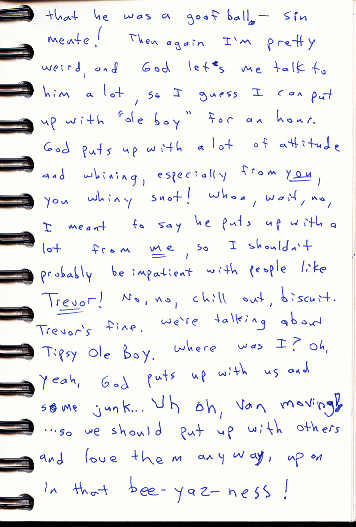 that he was a goofball - sin
mente! Then again I'm pretty
weird, and God let's me talk to
him a lot, so I guess I can put
up with "ole boy" for an hour.
God puts up with a lot of attitude
and whining, especially from you,
you whiny snot! whoa, wait, no,
I meant to say he puts up with a
lot from me, so I shouldn't
probably be impatient with people like
Trevor! No, no, chill out, biscuit.
Trevor's fine. we're talking about
Tipsy Ole Boy. where was I? Oh,
yeah, God puts up with us and
some junk... Uh oh, van moving!
...so we should put up with others
and love them anyway, up on
in that bee-yaz-ness!